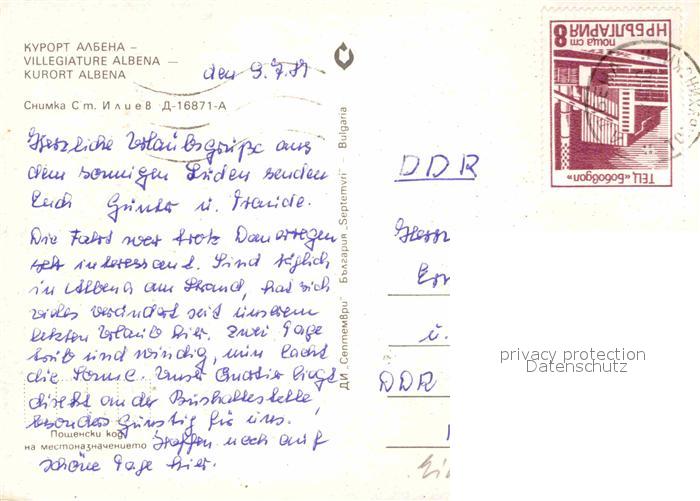 КУРОРТ АЛБЕНА –
VILLEGIATURE ALBENA —
KURORT ALBENA
den 9.7.81
Снимка Ст. Илиев Д-16871-А
Herzliche Urlaubsgrüße aus
dem sonnigen Süden senden
Euch Günter u. Traude.
Die Fahrt war trotz Dauerregen
sehr interessant. Sind täglich
in Albena am Strand, hat sich
vieles verändert seit unserem
letzten Urlaub hier. Zwei Tage
trüb und windig, nun lacht
die Sonne. Unser Quartier liegt
direkt an der Bushaltestelle,
besonders günstig für uns.
Пощенски код
на местоназначението
Hoffen noch auf
schöne Tage hier.
ДИ „Септември" България „Septemvri" – Bulgaria
НР БЪЛГАРИЯ
поща ст 8
ТЕЦ «Бобовдол»
DDR
Herr
u.
DDR
privacy protection
Datenschutz